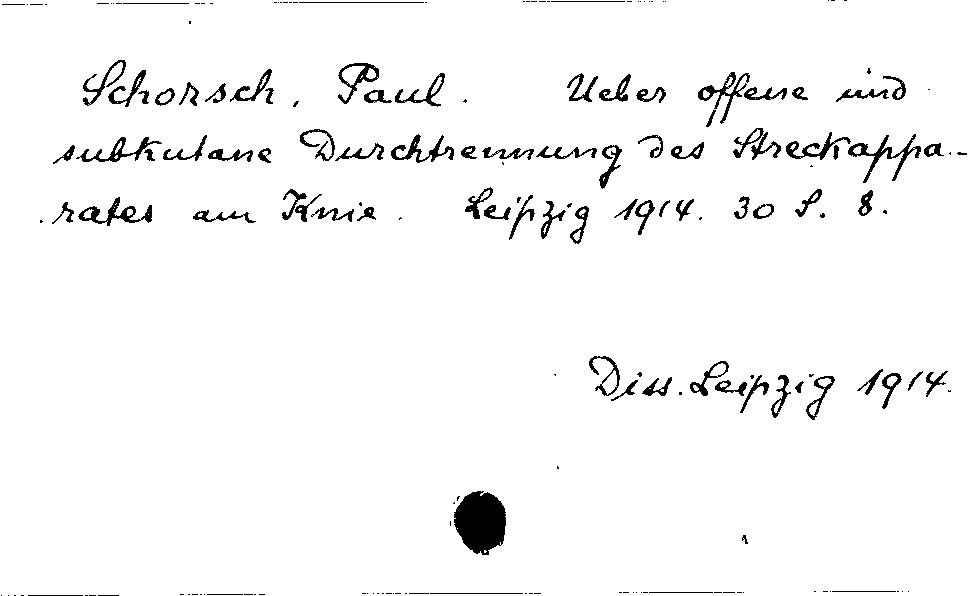 Schorsch, Paul. Ueber offene und
subkutane Durchtrennung des Streckappa-
rates am Knie. Leipzig 1914. 30 S. 8.
Diss. Leipzig 1914.